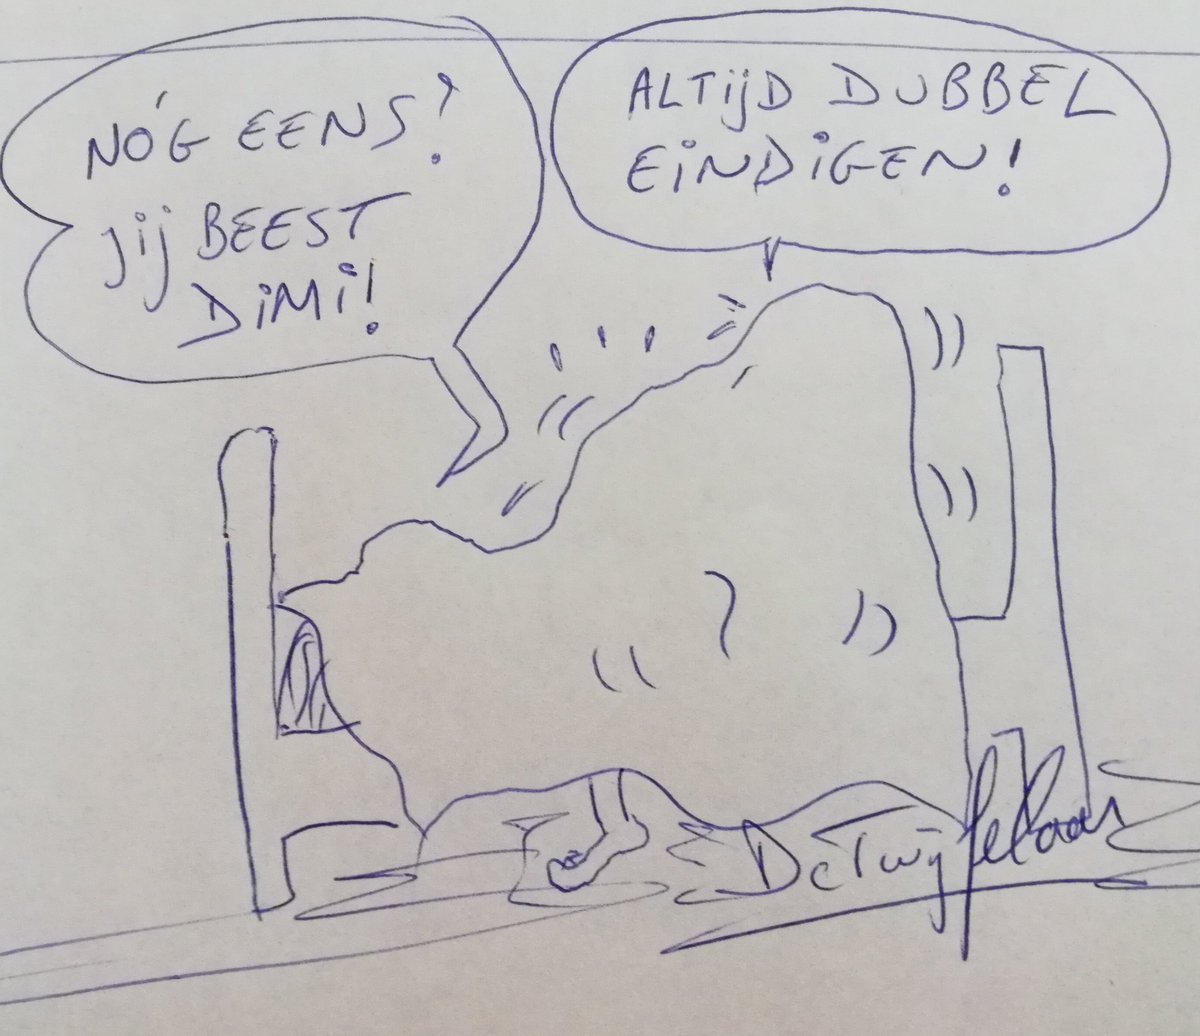 NÓG EENS?
Jij BEEST
DiMi!
ALTijD DUBBEL
EiNDiGEN!
DeTwijfelaar